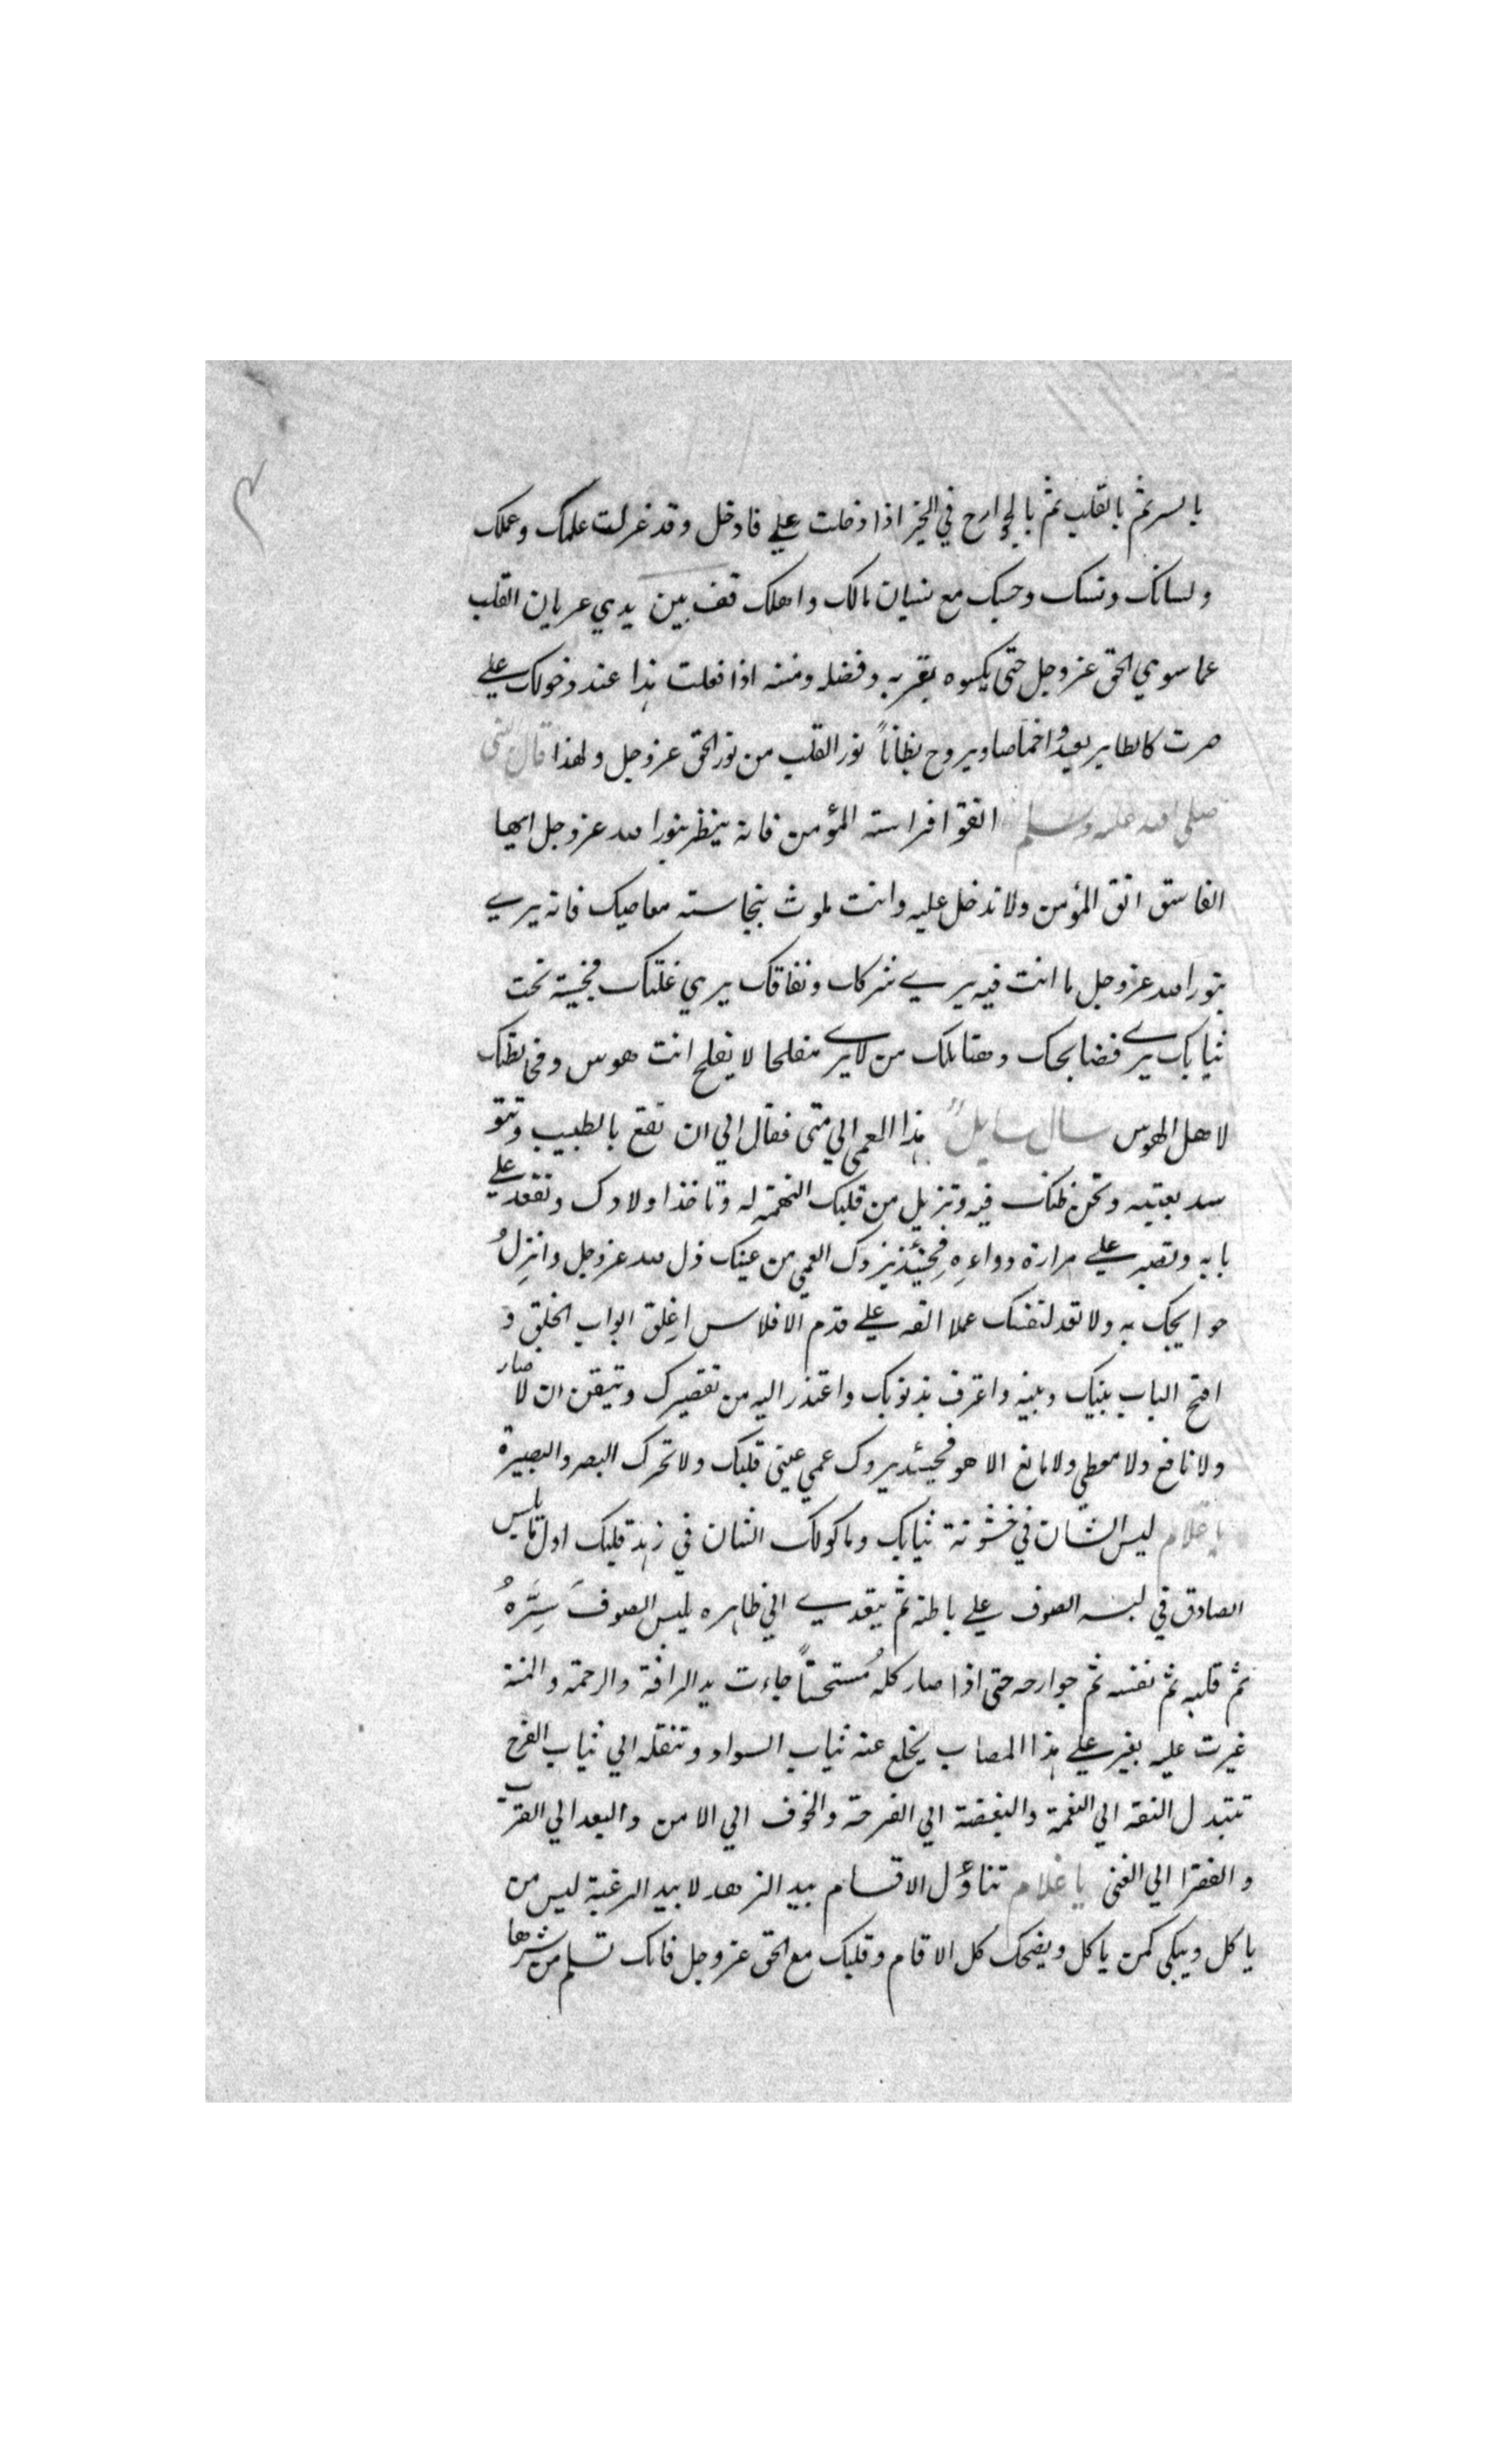 بالسر ثم بالقلب ثم بالجوارح في الخير اذا دخلت علي فادخل وقد عزلت علمك وعملك
ولسانك ونسبك وحسبك مع نسيان مالك واهلك قف بين يدي عريان القلب
عما سوي الحق عز وجل حتى يكسوه بقربه وفضله ومننه اذا فعلت هذا عند دخولك علي
صرت كالطاير يغدوا خماصا ويروح بطاناً نور القلب من نور الحق عز وجل ولهذا قال النبي
صلى الله عليه وسلم اتقوا فراسته المؤمن فانه ينظر بنور الله عز وجل ايها
الفاسق اتق المؤمن ولا تدخل عليه وانت ملوث بنجاسته معاصيك فانه يري
بنور الله عز وجل ما انت فيه يري شركك ونفاقك يري عملتك مخبية تحت
ثيابك يري فضايحك وهتايكك من لا يري مفلحا لا يفلح انت هوس ومخالطتك
لاهل الهوس سال سايلٌ هذا العمى الي متى فقال الي ان تقع بالطبيب وتتو
سد بعتبته وتحسن ظنك فيه وتزيل من قلبك التهمة له وتاخذ اولادك وتقعد علي
بابه وتصبر علي مرارة دواءِهِ فحينئذ يزول العمي من عينك ذل لله عز وجل وانزِلُ
حوايجك به ولا تعد لنفسك عملا القه علي قدم الافلاس اغلِق ابواب الخلق و
افتح الباب بينك وبينه واعترف بذنوبك واعتذر اليه من تقصيرك وتيقن ان لا ضار
ولا نافع ولا معطي ولا مانع الا هو فحينئذ يزول عمي عيني قلبك ولا تحرك البصر والبصيرة
يا غلام ليس الشان في خشونة ثيابك وماكولك الشان في زهد قلبك اول ما يلبس
الصادق في لبسه الصوف علي باطنه ثم يتعدي الي ظاهره يلبس الصوفَ سِرَّهُ
ثم قلبه ثم نفسه ثم جوارحه حتى اذا صار كلهُ مُستخشناً جاءت يد الرافة والرحمة والمنة
غيرت عليه بغير علي هذا المصاب يخلع عنه ثياب السواد وتنقله الي ثياب الفرح
تتبدل النقمة الي النعمة والبغضة الي الفرحة والخوف الي الامن والبعد الي القرب
والفقرا الي الغنى يا غلام تناؤل الاقسام بيد الزهد لا بيد الرغبة ليس من
ياكل ويبكي كمن ياكل ويضحك كل الاقسام وقلبك مع الحق عز وجل فانك تسلم من شرها